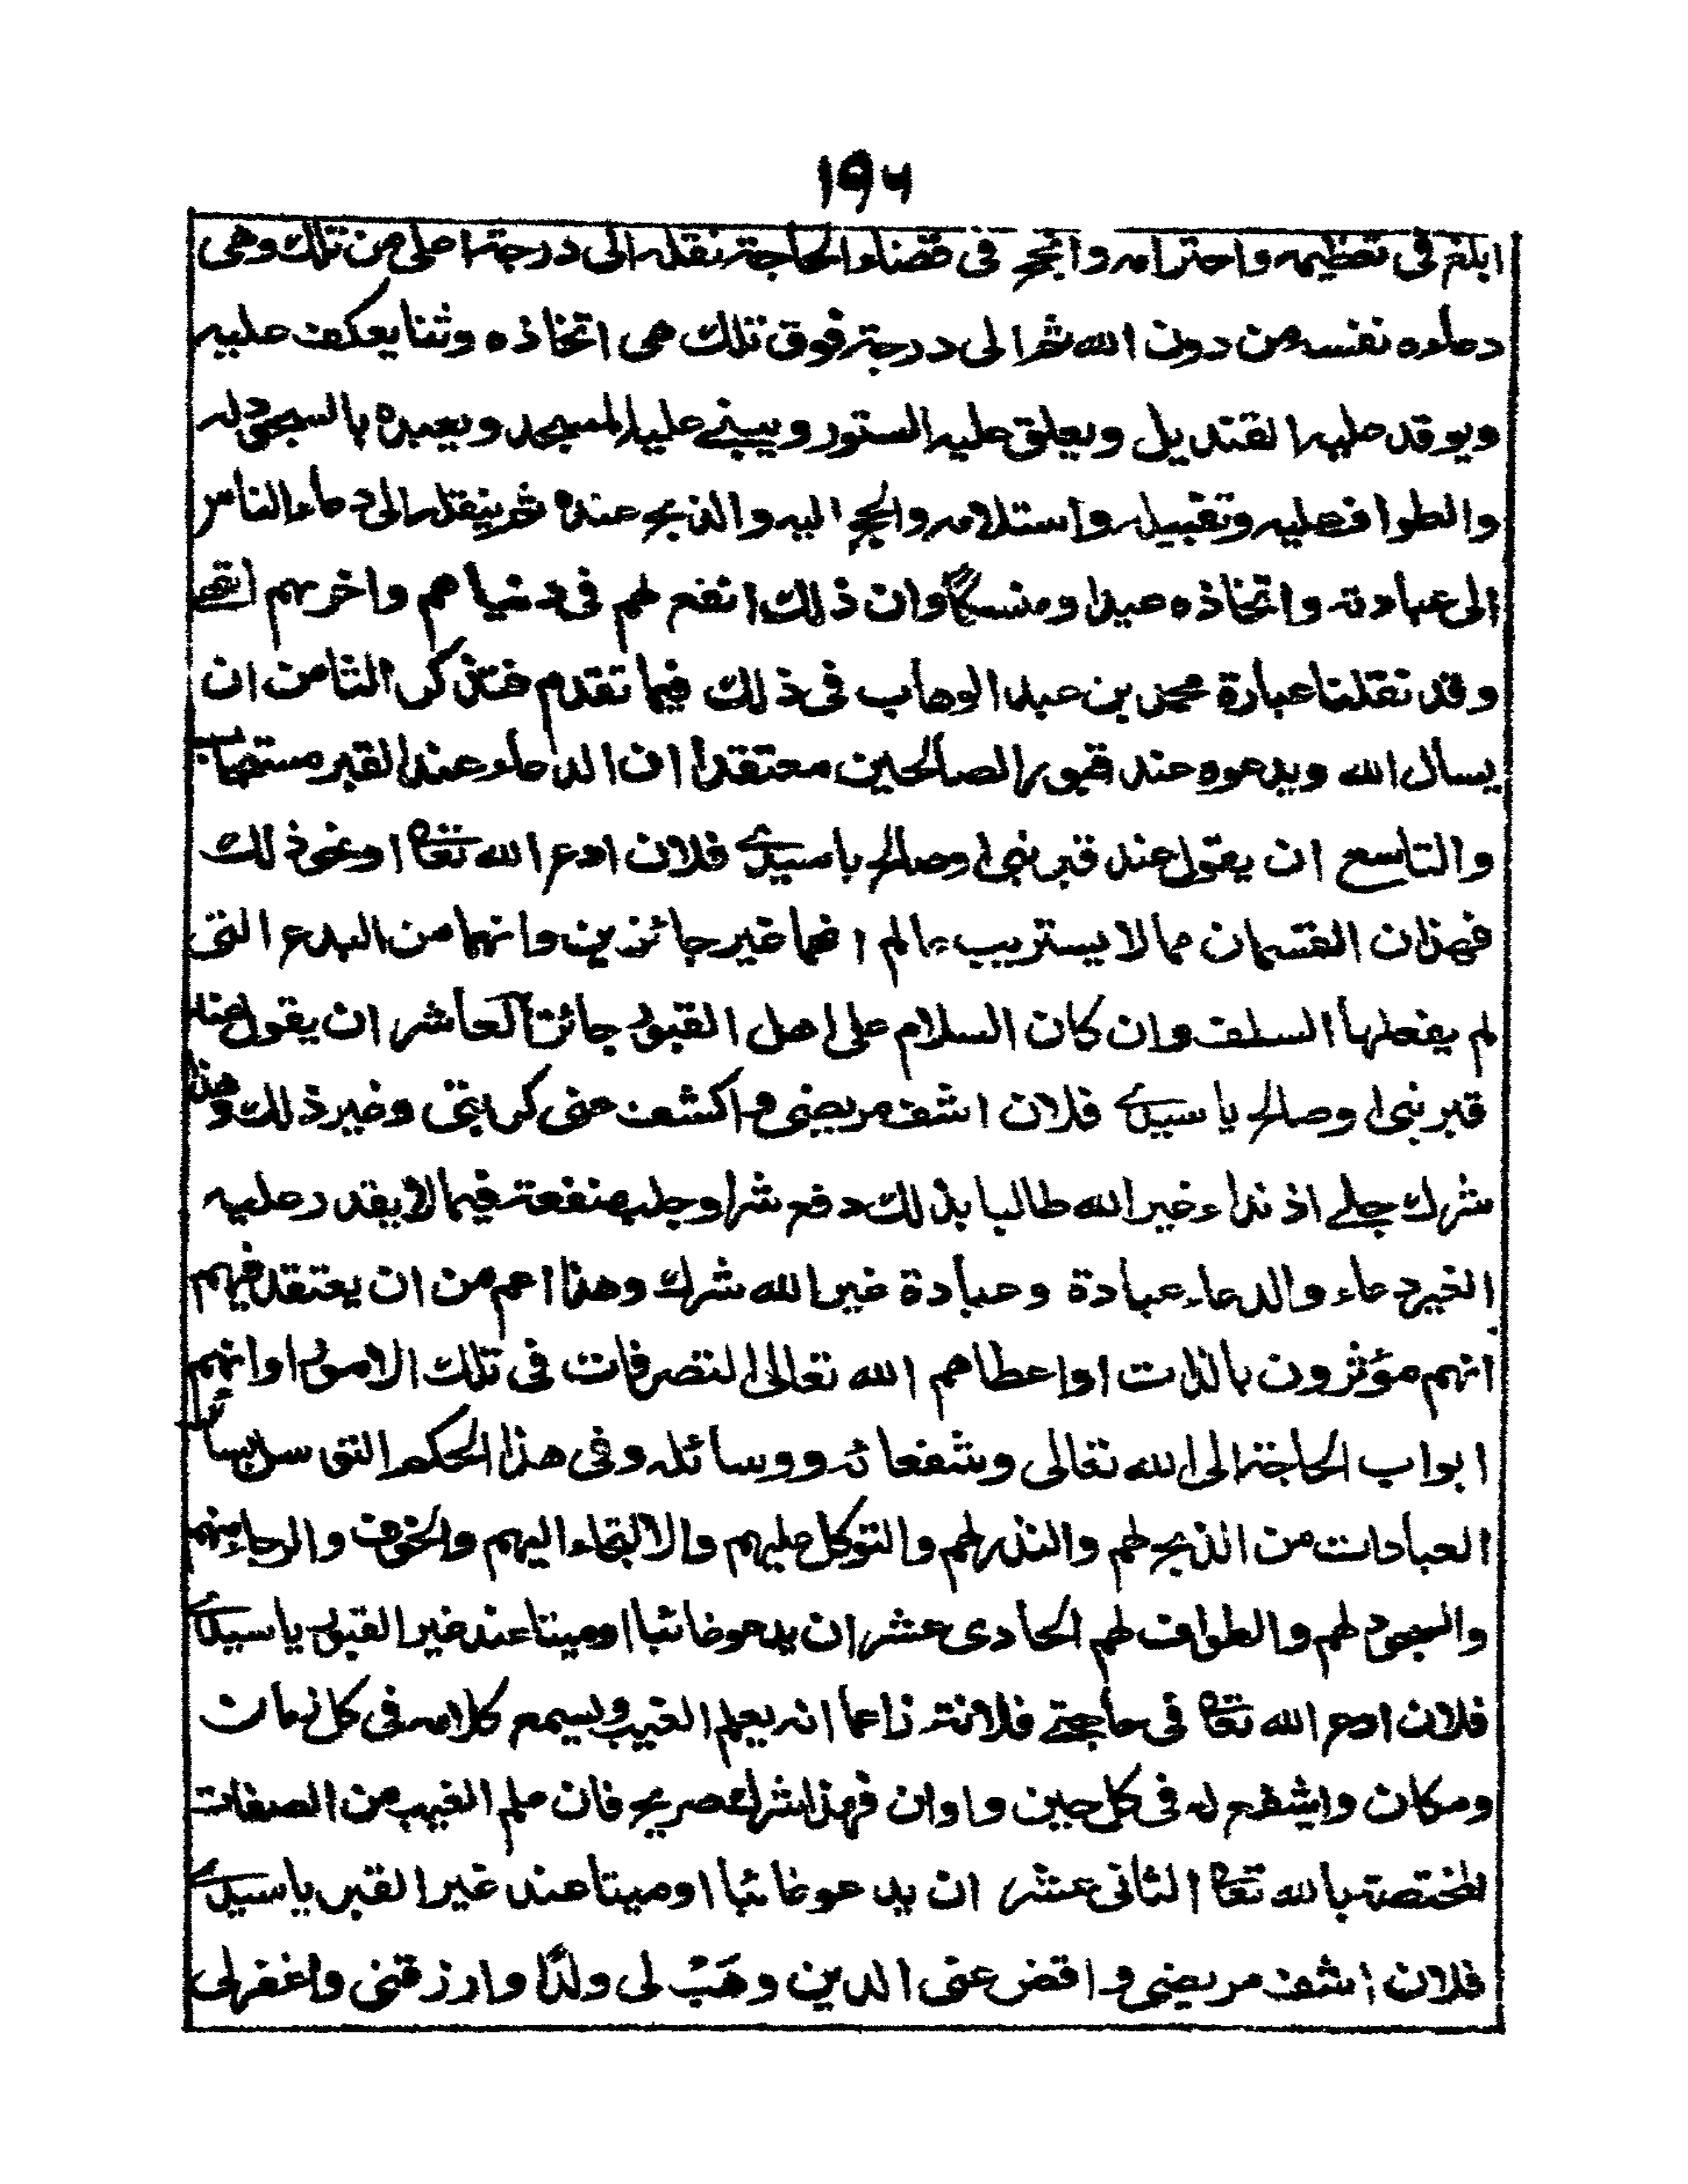 ١٩٦
ابلغ فى تعظيمه واحترامه وانجح فى قضاء الحاجة نقله الى درجة اعلى من تلك وهى
دعاءه نفسه من دون الله ثم الى درجة فوق تلك هى اتخاذه وثنا يعكف عليه
ويوقد عليه القنديل ويعلق عليه الستور ويبنى عليه المسجد ويعبده بالسجود له
والطواف عليه وتقبيله واستلامه والحج اليه والذبح عنده ثم ينقله الى دعاء الناس
الى عبادته واتخاذه عيدا ومنسكا وان ذلك انفع لهم فى دنياهم واخرتهم انتهى
وقد نقلنا عبارة محمد بن عبد الوهاب فى ذلك فيما تقدم فتذكر الثامن ان
يسأل الله ويدعوه عند قبور الصالحين معتقدا ان الدعاء عند القبر مستجاب
والتاسع ان يقول عند قبر نبى او صالح يا سيدى فلان ادع الله تعا او نحو ذلك
فهذان القسمان مما لا يستريب عالم انهما غير جائزين وانهما من البدع التى
لم يفعلها السلف وان كان السلام على اهل القبور جائزا العاشر ان يقول عند
قبر نبى او صالح يا سيدى فلان اشف مريضى واكشف عنى كربتى وغير ذلك وهذا
شرك جلى اذ نداء غير الله طالبا بذلك دفع شر او جلب منفعة فيما لا يقدر عليه
الغير دعاء والدعاء عبادة وعبادة غير الله شرك وهذا اعم من ان يعتقد فيهم
انهم مؤثرون بالذات او اعطاهم الله تعالى التصرفات فى تلك الامور او انهم
ابواب الحاجة الى الله تعالى وشفعائه ووسائله وفى هذا الحكم التوسل بسائر
العبادات من الذبح لهم والنذر لهم والتوكل عليهم والالتجاء اليهم والخوف والرجاء منهم
والسجود لهم والطواف لهم الحادى عشر ان يدعو غائبا او ميتا عند غير القبور يا سيدى
فلان ادع الله تعا فى حاجتى فلانة زاعما انه يعلم الغيب ويسمع كلامه فى كل زمان
ومكان ويشفع له فى كل حين واوان فهذا شرك صريح فان علم الغيب من الصفات
المختصة بالله تعا الثانى عشر ان يدعو غائبا او ميتا عند غير القبر يا سيدى
فلان اشف مريضى واقض عنى الدين وهب لى ولدا وارزقنى واغفر لى